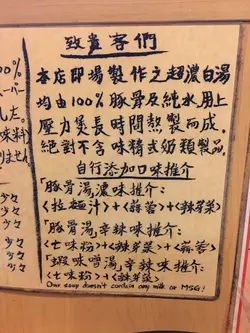 致貴客們
本店即場製作之超濃白湯
均由100%豚骨及純水用上
壓力煲長時間熬製而成,
絕對不含味精或奶類製品。
自行添加口味推介
「豚骨湯濃味推介:
<拉麵汁>+<蒜蓉>+<辣芽菜>
「豚骨湯,辛辣味推介:
<七味粉>+<辣芽菜>+<蒜蓉>
「蝦味噌湯,辛辣味推介:
<七味粉>+<辣芽菜>
Our soup doesn't contain any milk or MSG!
100%
スーパー
した。
味料)
りません。
少々
少々
少々
少々